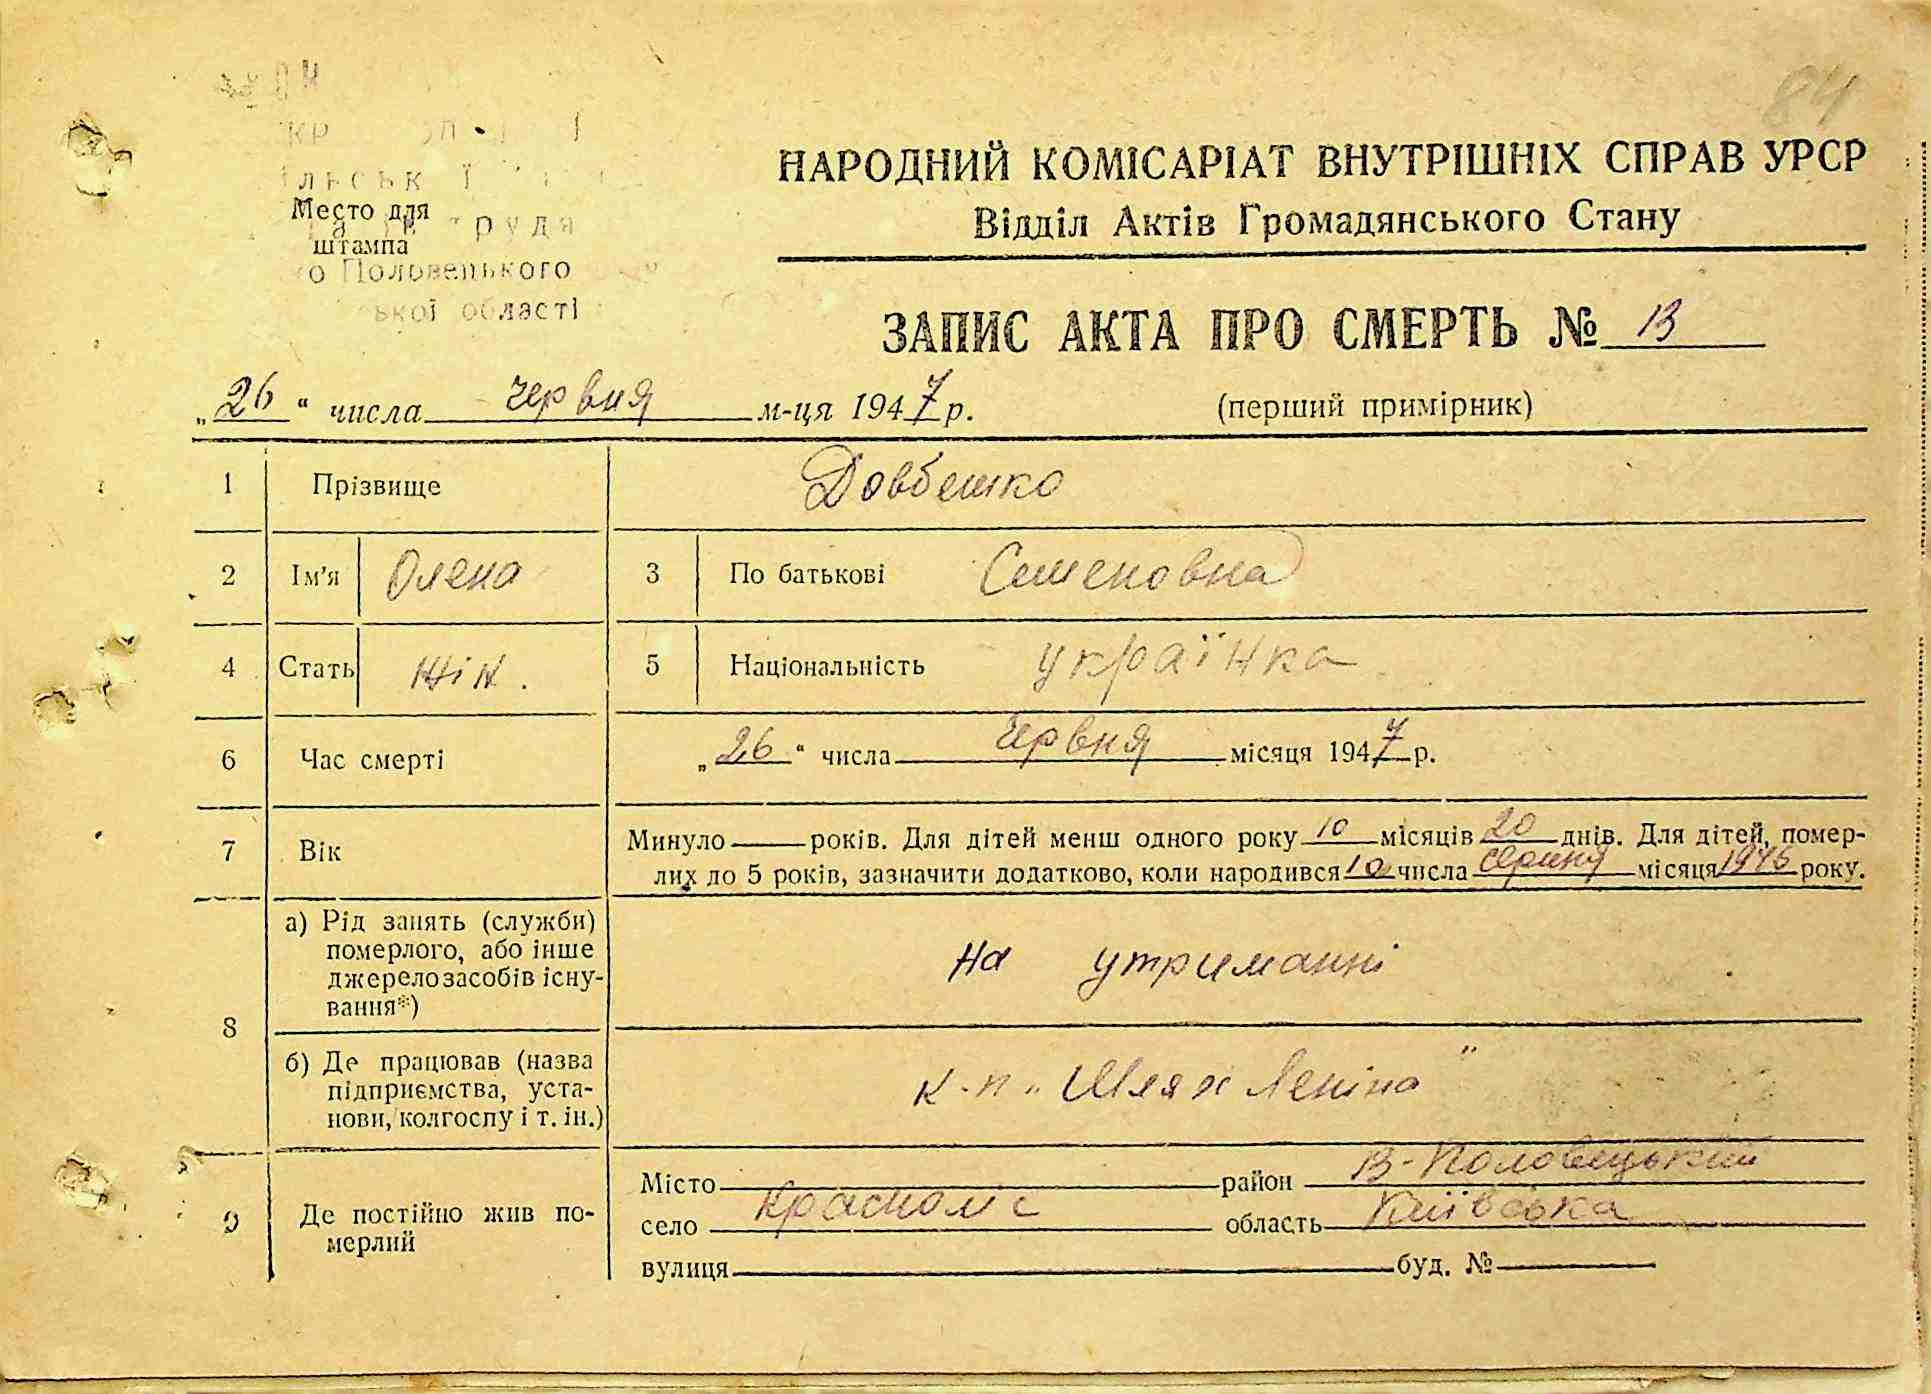 84
Место для
штампа
Половецького
області
НАРОДНИЙ КОМІСАРІАТ ВНУТРІШНІХ СПРАВ УРСР
Відділ Актів Громадянського Стану
ЗАПИС АКТА ПРО СМЕРТЬ № 13
„26“ числа червня м-ця 1947 р. (перший примірник)
1 Прізвище Довбешко
2 Ім'я Олена 3 По батькові Семеновна
4 Стать жін. 5 Національність українка
6 Час смерті „26“ числа червня місяця 1947 р.
7 Вік Минуло — років. Для дітей менш одного року 10 місяців 20 днів. Для дітей, помер-
лих до 5 років, зазначити додатково, коли народився 10 числа серпня місяця 1946 року.
8 а) Рід занять (служби)
померлого, або інше
джерело засобів існу-
вання*)
на утриманні
б) Де працював (назва
підприємства, уста-
нови, колгоспу і т. ін.)
к-п „Шлях Леніна"
9 Де постійно жив по-
мерлий
Місто район В-Половецький
село область Київська
вулиця буд. №